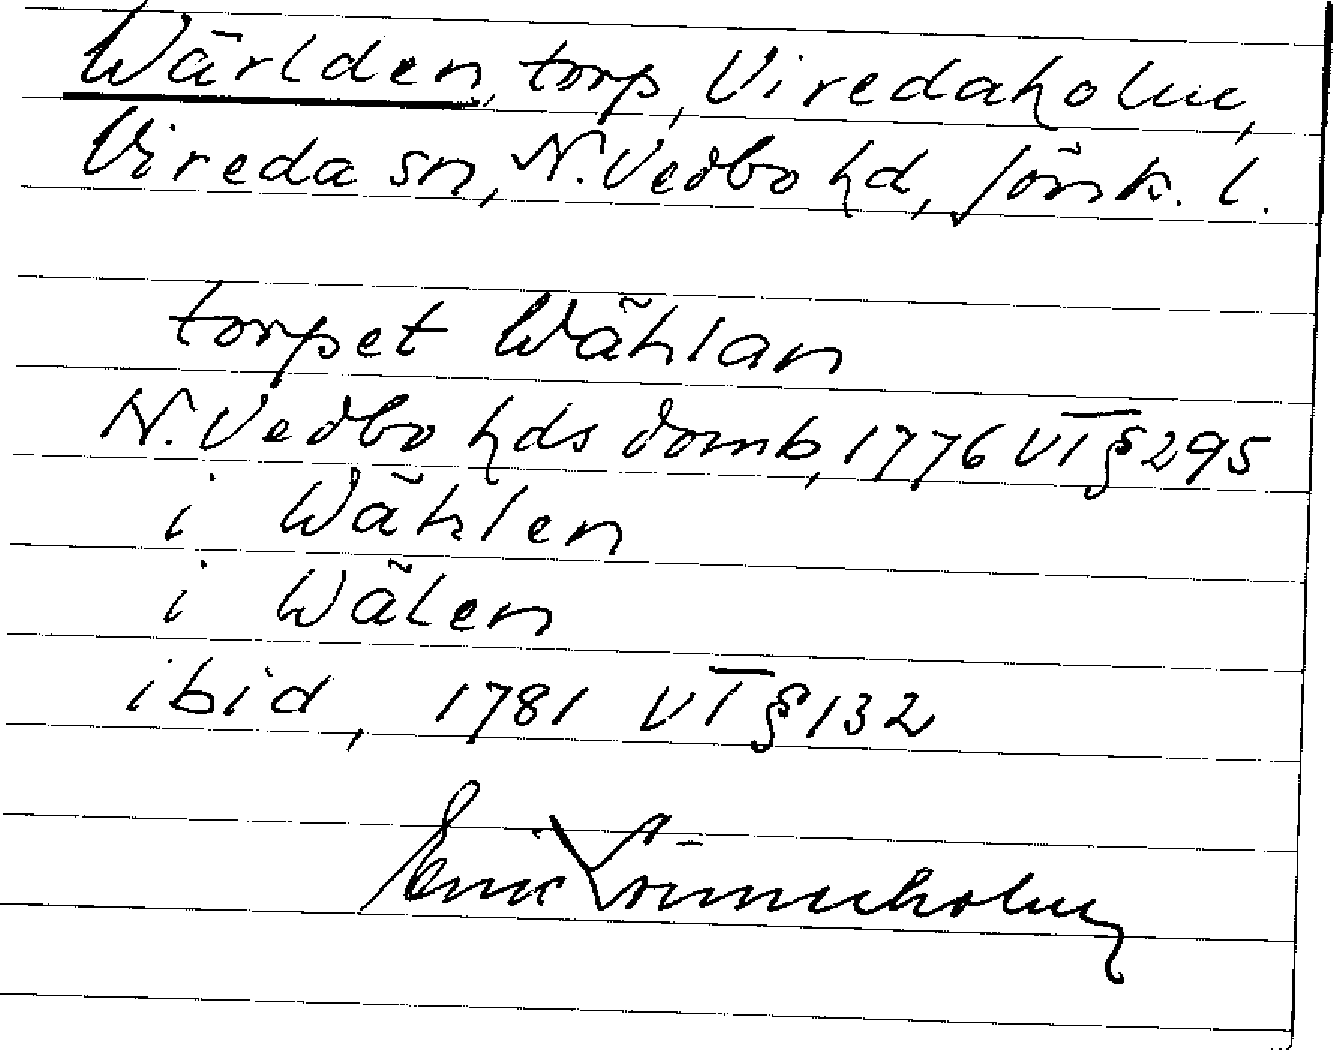 Wärlden, torp, Viredaholm,
Vireda sn, N. Vedbo hd, Jönk. l.
torpet Wählan
N. Vedbo hds domb, 1776 VT § 295
i Wählen
i Wälen
ibid, 1781 VT § 132
Eric Lönnerholm